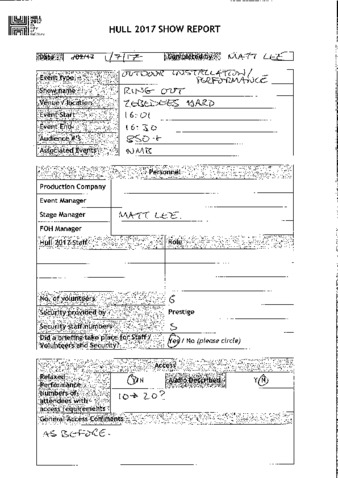 HULL 2017 SHOW REPORT
Date: 1/7/17 Completed by: MATT LEE
Event Type: OUTDOOR INSTALLATION/ PERFORMANCE
Show name RING OUT
Venue / location ZEBEDEES YARD
Event Start 16:01
Event End 16:30
Audience #'s 850+
Associated Events NMB
Personnel
Production Company
Event Manager
Stage Manager MATT LEE.
FOH Manager
Hull 2017 Staff Role
No. of volunteers 6
Security provided by Prestige
Security staff numbers 5
Did a briefing take place for Staff / Volunteers and Security? Yes / No (please circle)
Access
Relaxed Performance Y/N Audio Described Y/N
Numbers of attendees with access requirements 10→20?
General Access Comments
AS BEFORE.